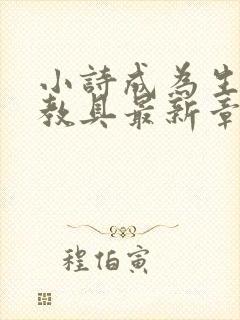 小詩成為生
教具最新章
程伯寅